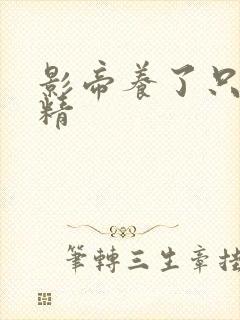 影帝养了只
精
筆轉三生章挂